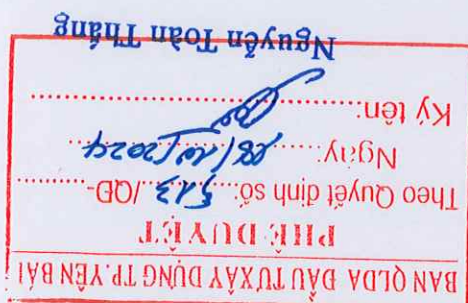 BAN QLDA ĐẦU TƯ XÂY DỰNG TP.YÊN BÁI
PHÊ DUYỆT
Theo Quyết định số: 513 /QĐ-
Ngày: 28/10/2024
Ký tên:
Nguyễn Toàn Thắng